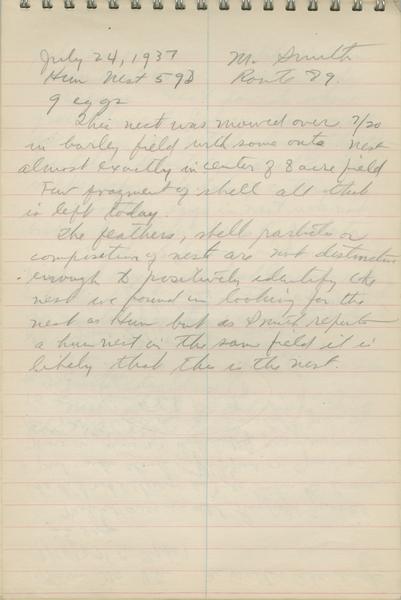 July 24, 1937 M. Smith
Hun Nest 593 Route 89.
9 eggs
This nest was mowed over 7/20
in barley field with some oats nest
almost exactly in center of 8 acre field
Few fragment of shell all that
is left today.
The feathers, shell or
composition of nest are not distinctive
enough to positively identify the
nest we found in looking for the
nest as Hun but as Smith reports
a hun nest in the same field it is
likely that this is the nest.